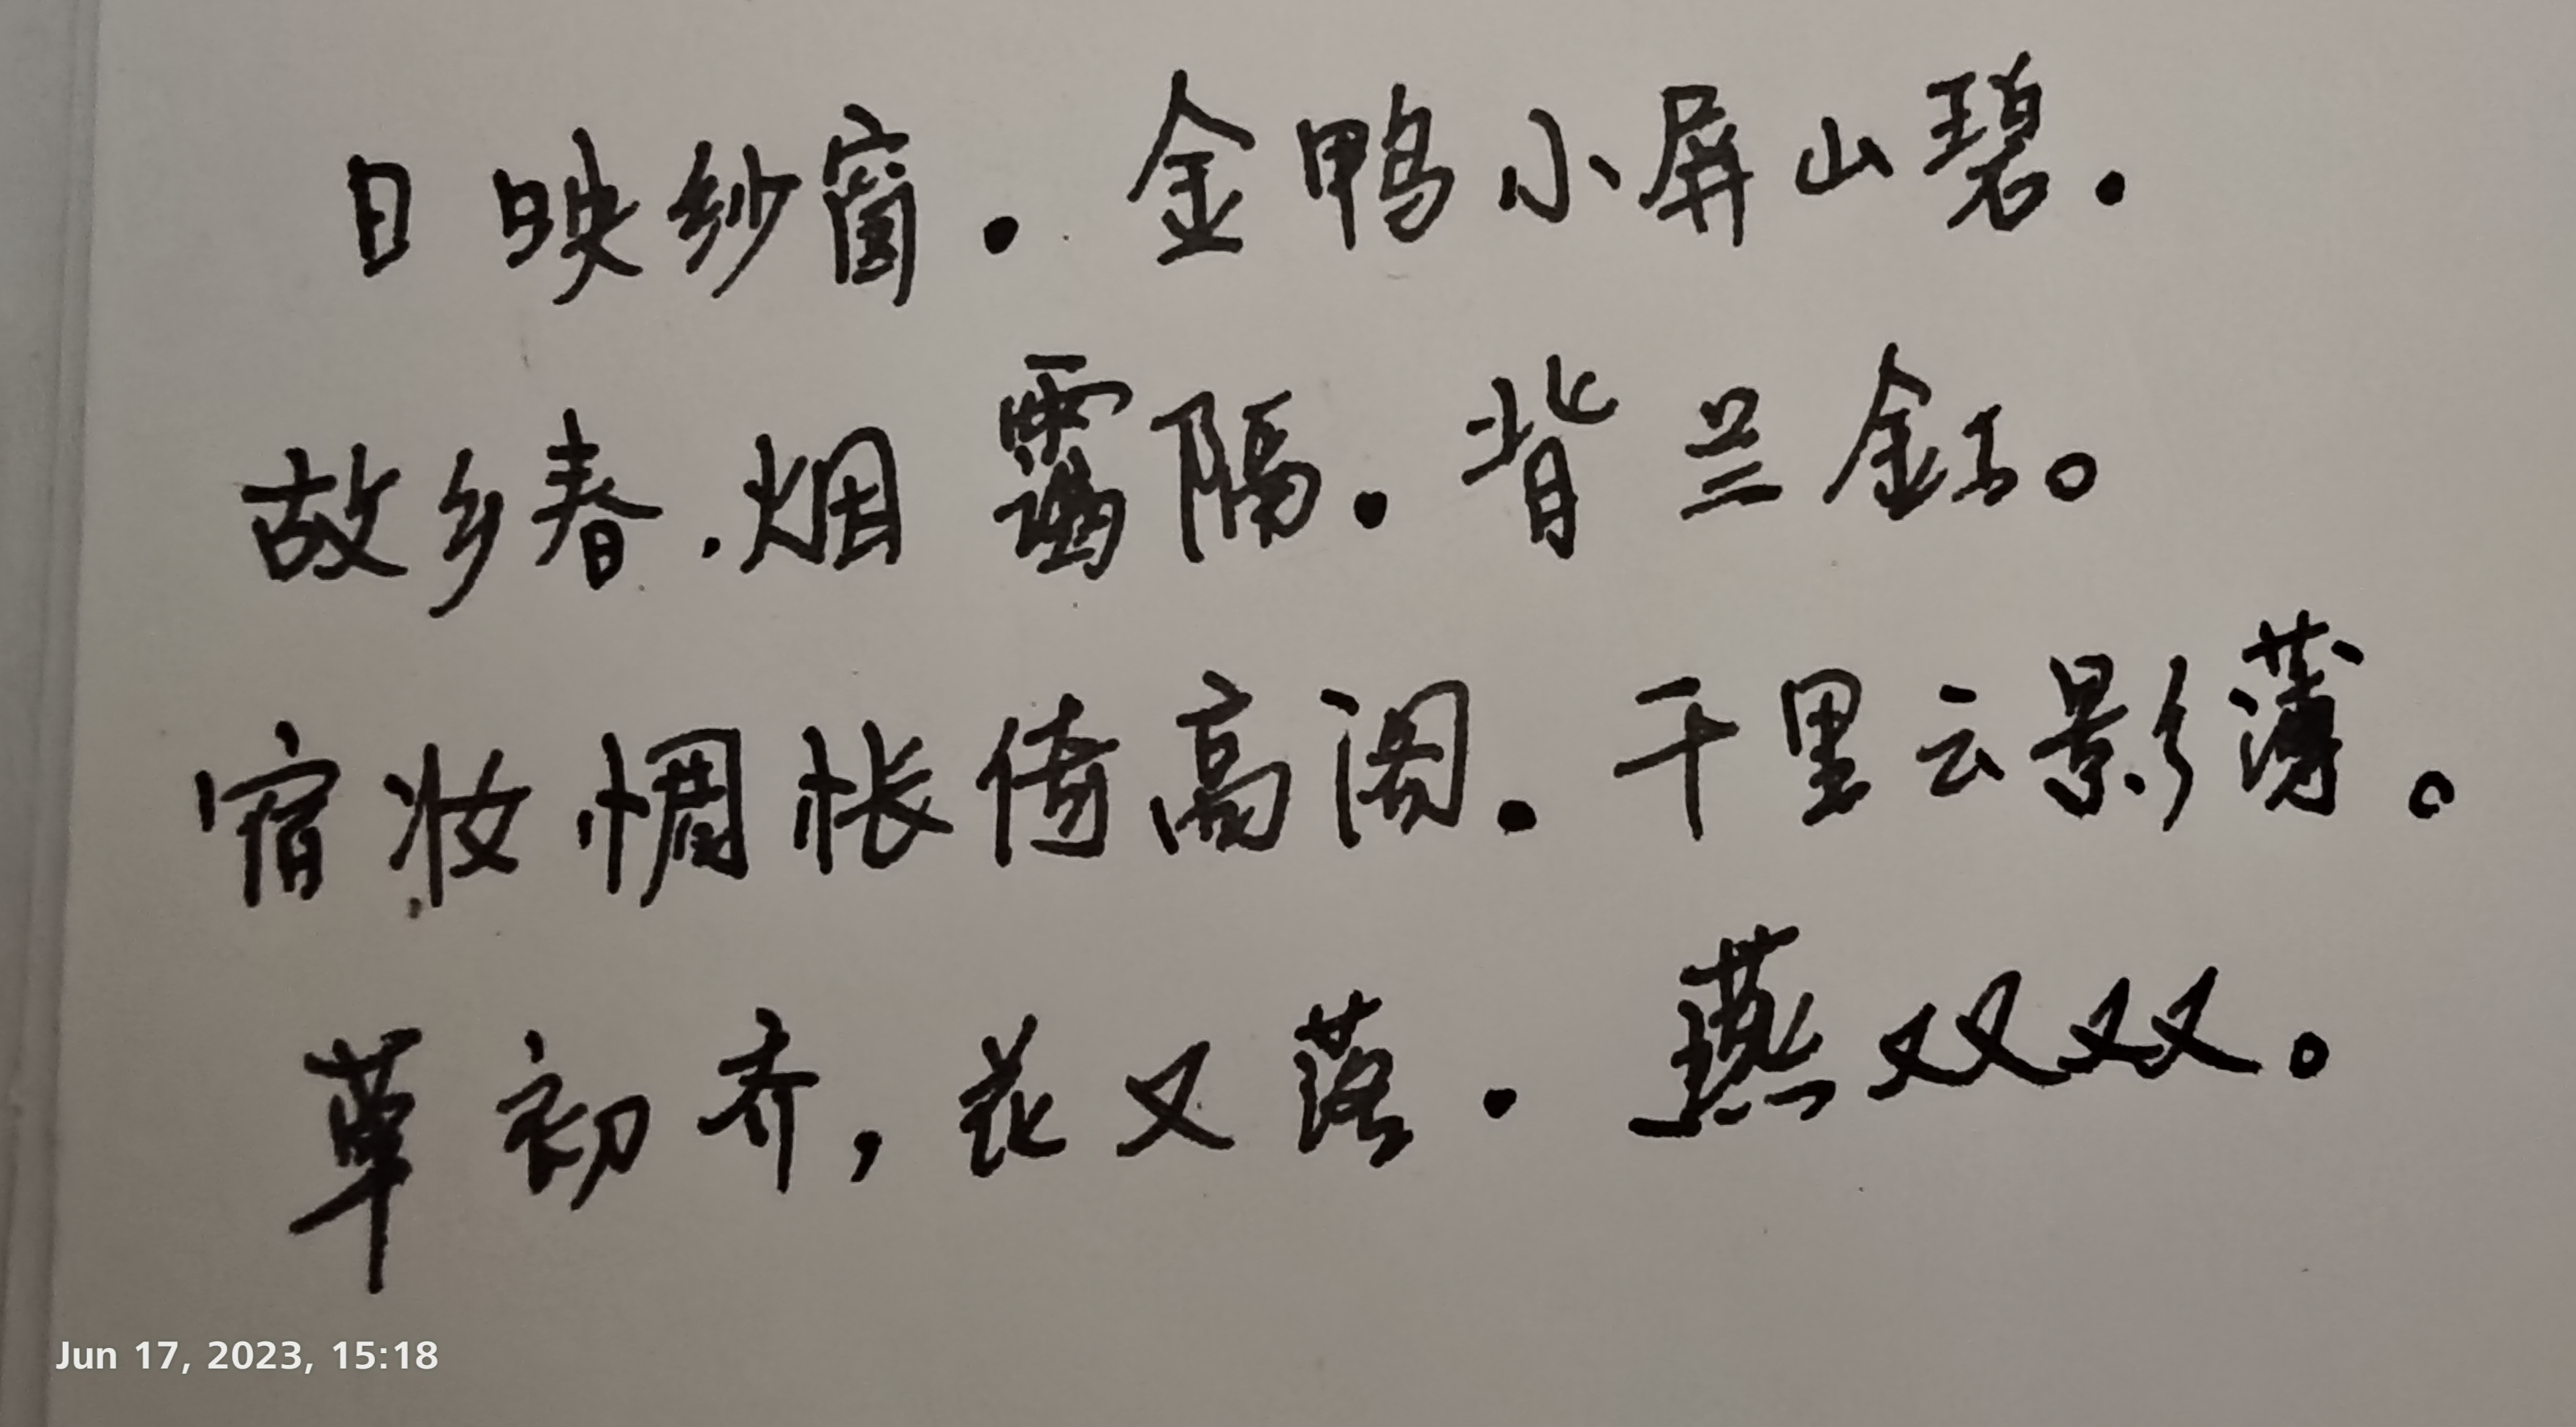 日映纱窗．金鸭小屏山碧．
故乡春．烟霭隔．背兰釭。
宿妆惆怅倚高阁．千里云影薄。
草初齐，花又落．燕双双。
Jun 17, 2023, 15:18